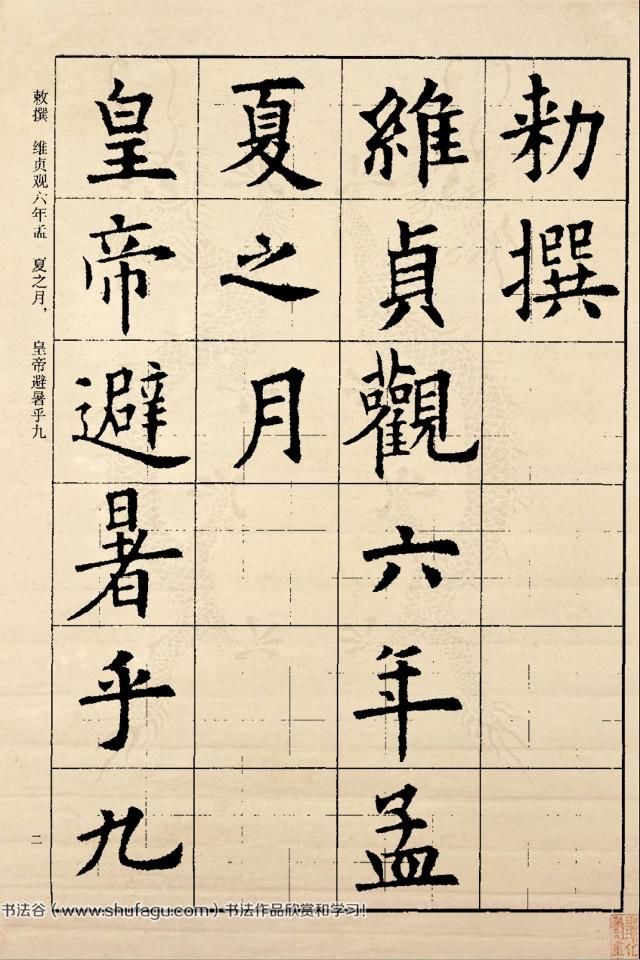 勅撰
維貞觀六年孟
夏之月
皇帝避暑乎九
敕撰 维贞观六年孟 夏之月， 皇帝避暑乎九
二
书法谷（www.shufagu.com）书法作品欣赏和学习！